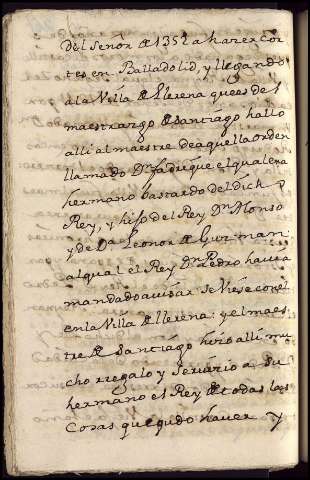 del Señor de 1351 a hazer Cor
tes en Balladolid, y llegando
a la Villa de Llerena que es del
maestrazgo de Santiago hallo
alli al maestre de aquella orden
llamado Dn fadrique el qual era
hermano bastardo del dicho
Rey, y hijo del Rey Dn Alonso
y de Da Leonor de Guzman
al qual el Rey Dn Pedro havia
mandado avisar se viese con el
en la Villa de Llerena: y el maes
tre de Santiago hizo alli mu
cho rregalo y servicio a Su
hermano el Rey de todas las
Cosas que pudo haver y